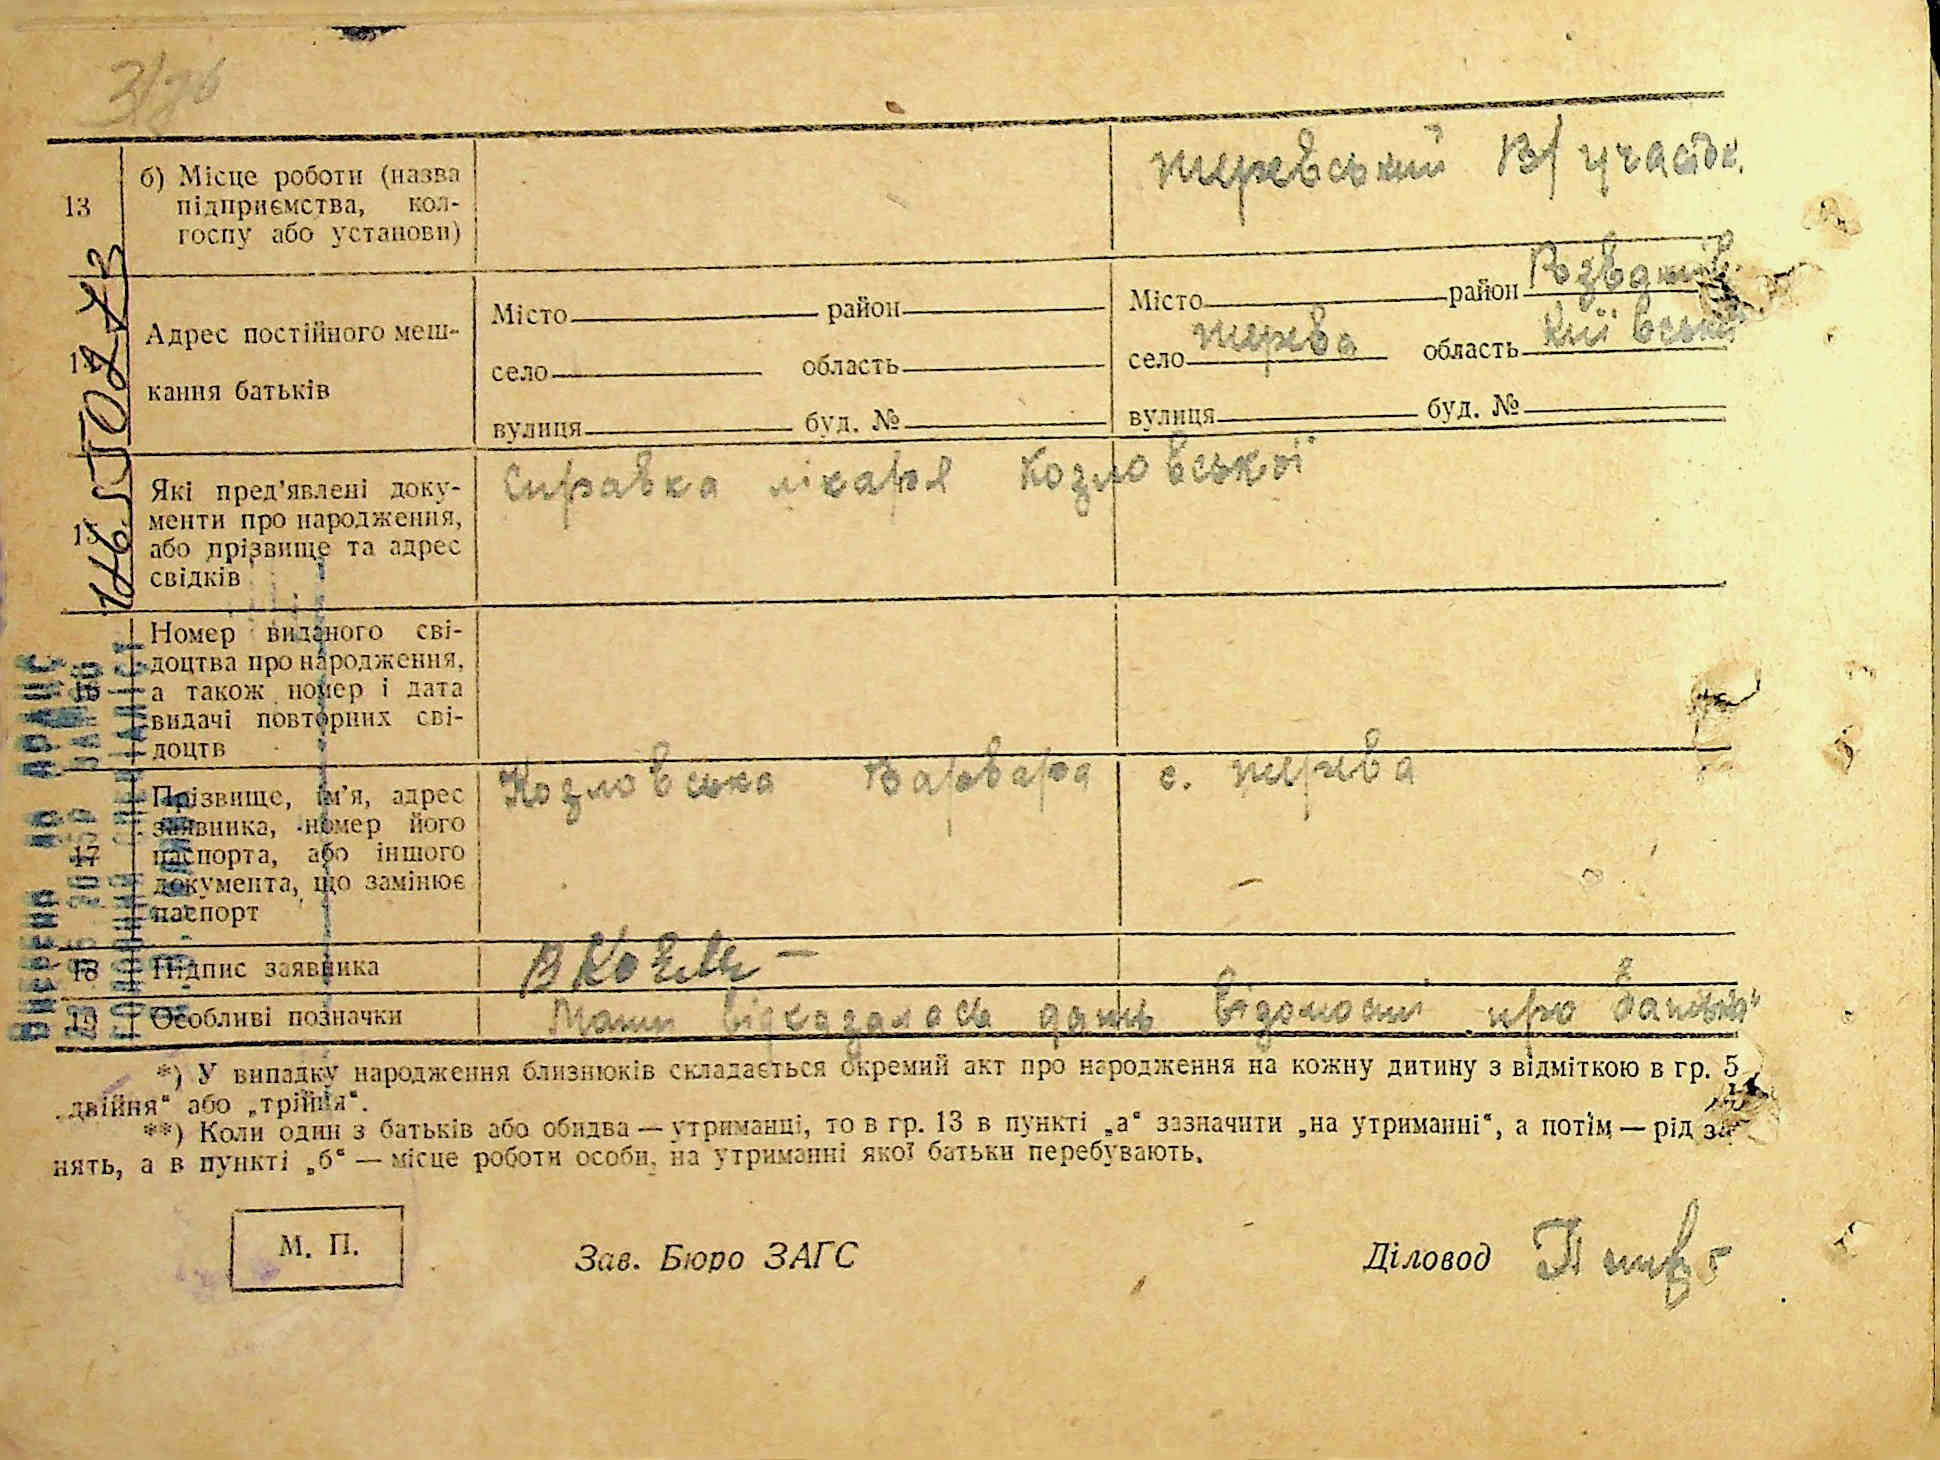 13
б) Місце роботи (назва
підприємства, кол-
госпу або установи)
Шеревський В/ участок.
Адрес постійного меш-
кання батьків
Місто район
село область
вулиця буд. №
Місто район Розважів.
село область Київська
вулиця буд. №
15
Які пред'явлені доку-
менти про народження,
або прізвище та адрес
свідків
Справка лікаря Козловської
16
Номер виданого сві-
доцтва про народження,
а також номер і дата
видачі повторних сві-
доцтв
17
Прізвище, ім'я, адрес
заявника, номер його
паспорта, або іншого
документа, що замінює
паспорт
Козловська Варвара с.
18
Підпис заявника
19
Особливі позначки
Мати відказалась дать відомості про батька
*) У випадку народження близнюків складається окремий акт про народження на кожну дитину з відміткою в гр. 5
„двійня“ або „трійня“.
**) Коли один з батьків або обидва — утриманці, то в гр. 13 в пункті „а“ зазначити „на утриманні“, а потім — рід за-
нять, а в пункті „б“ — місце роботи особи, на утриманні якої батьки перебувають.
М. П.
Зав. Бюро ЗАГС
Діловод